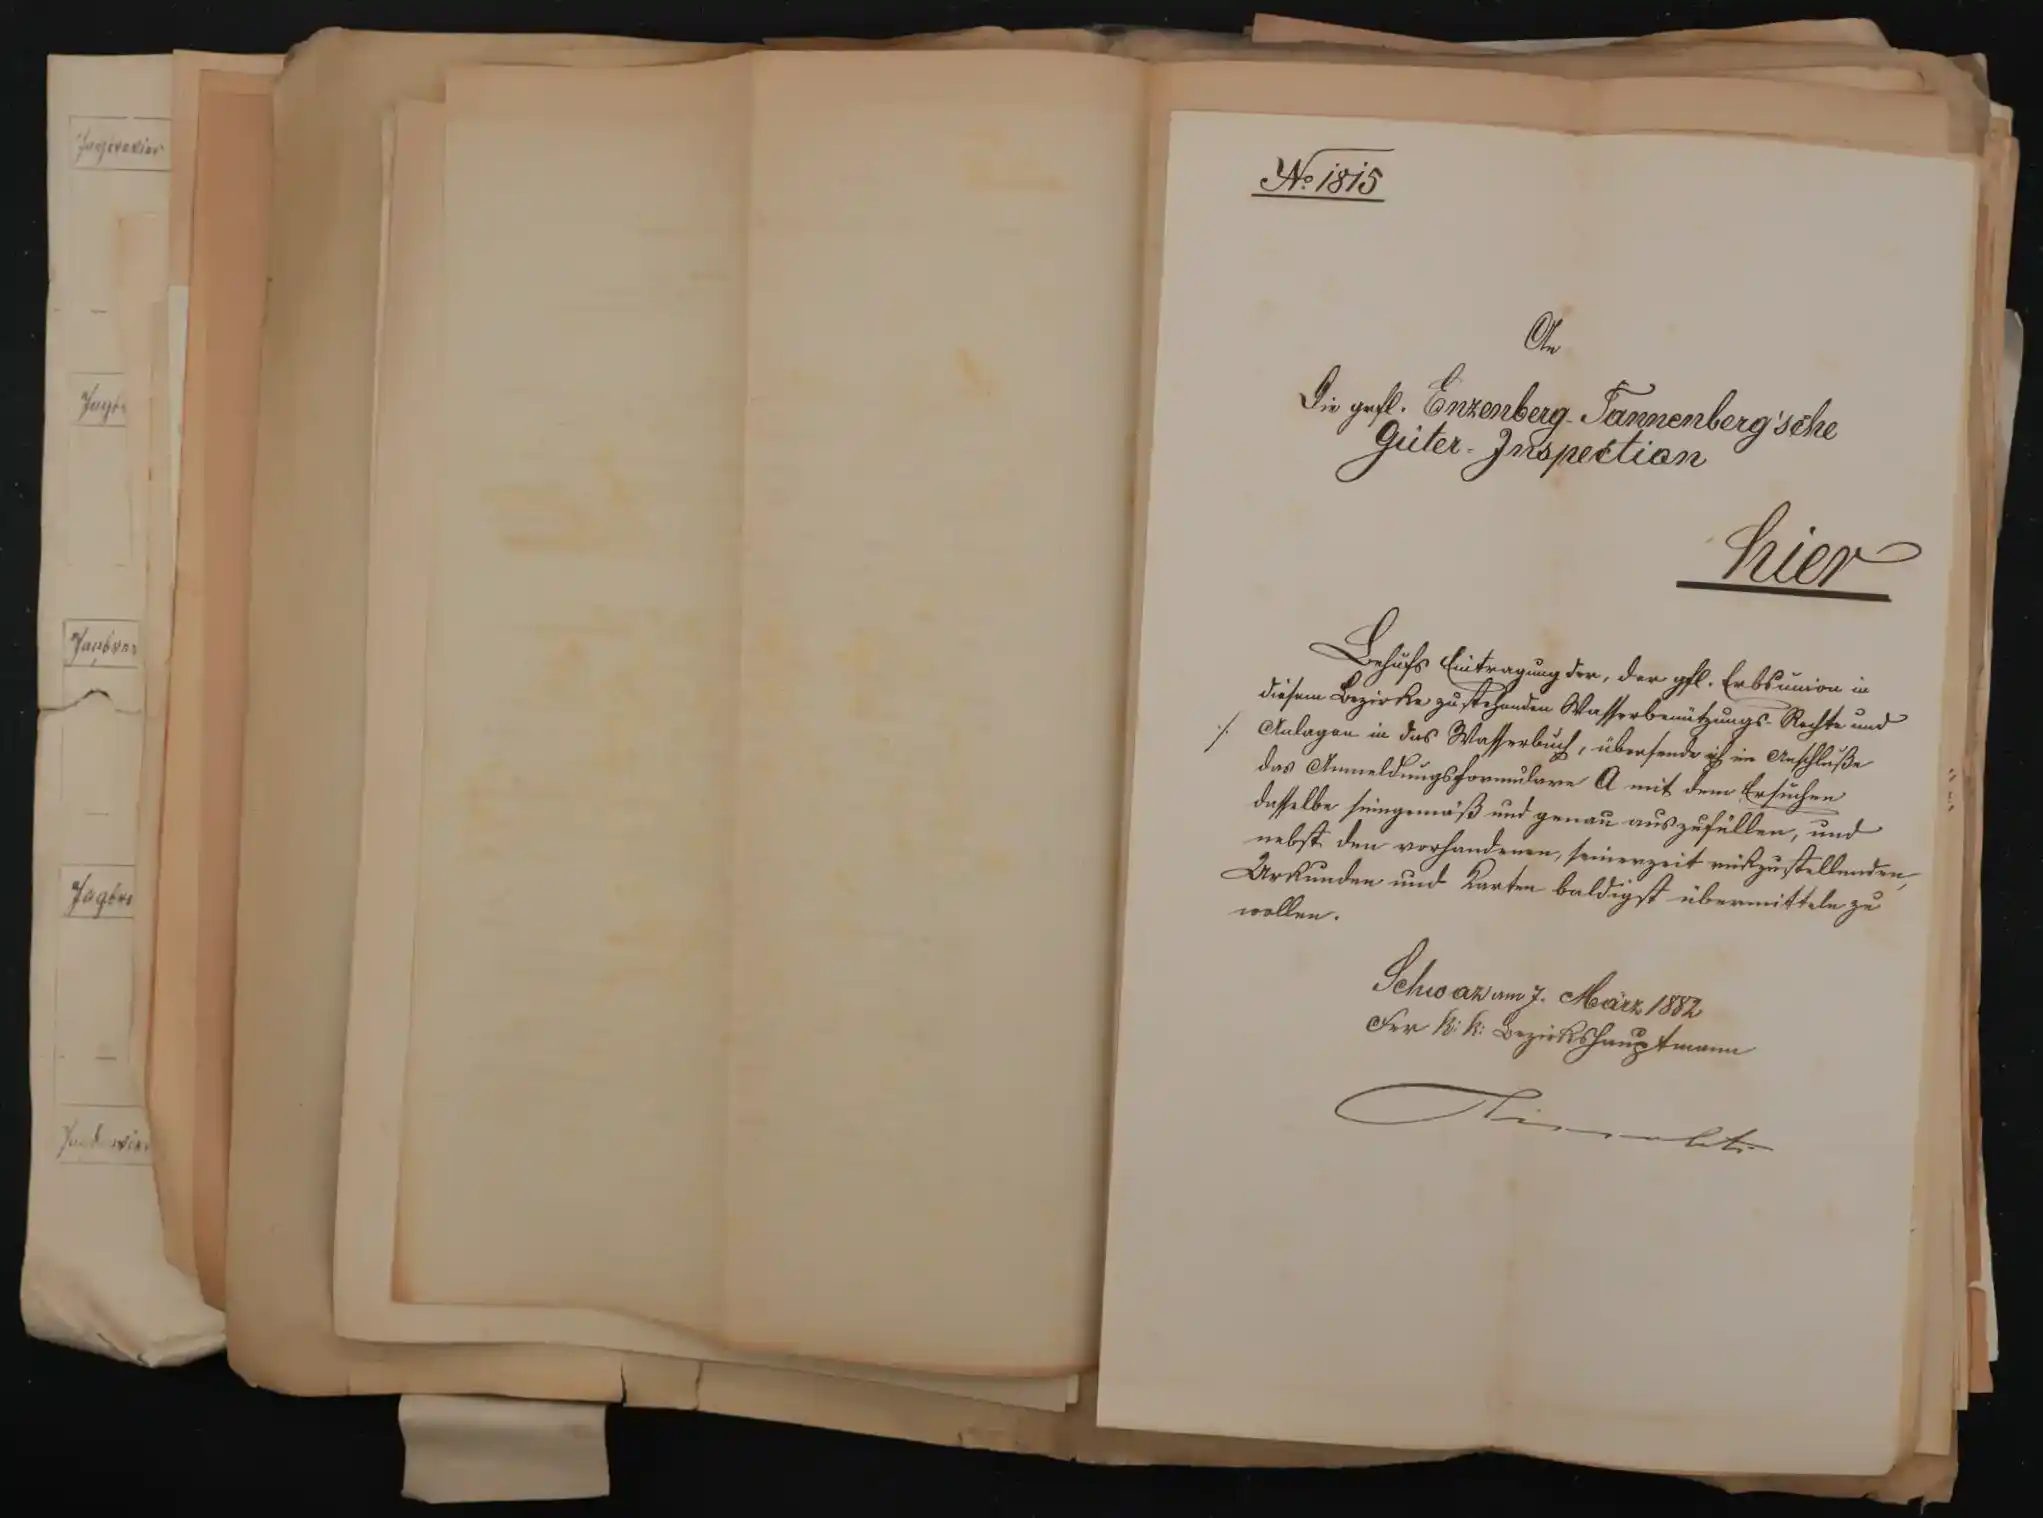 Jagdrevier
Jagdr
Jagdrev
Jagdre
Jagdrevier
No 1815
An
Die grfl. Enzenberg-Tannenberg'sche
Güter-Inspection
hier
Behufs Eintragung der, der gfl. Erbsunion in
diesem Bezirke zustehenden Wasserbenützungs-Rechte und
./. Anlagen in das Wasserbuch, übersende ich im Anschluße
das Anmeldungsformulare A mit dem Ersuchen
dasselbe sinngemäß und genau auszufüllen, und
nebst den vorhandenen, seinerzeit rückzustellenden,
Urkunden und Karten baldigst übermitteln zu
wollen.
Schwaz am 7. März 1882
Der k: k: Bezirkshauptmann